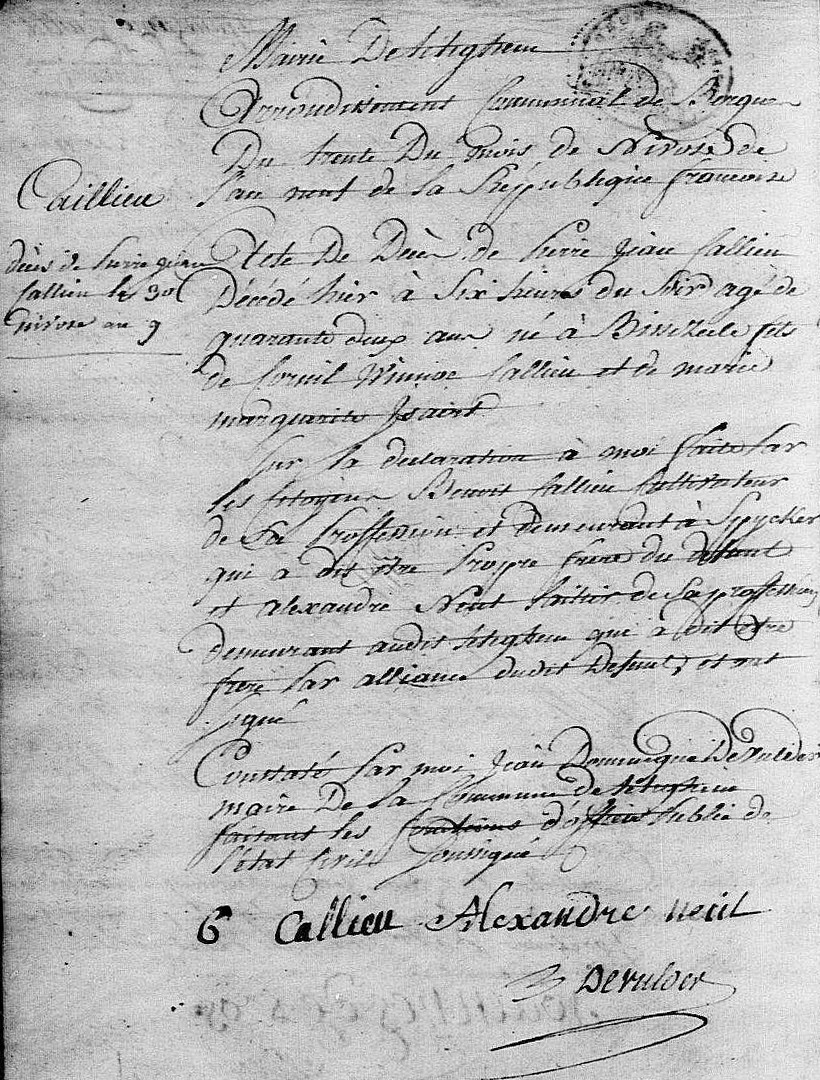 Mairie De titeghem
Arrondissement Communal de Bergues
Du trente Du mois de Nivose de
l'an neuf de la Republique francoise
Caillieu
décès de pierre jean
Callieu le 30
nivose an 9
Acte De Decès de pierre jean Callieu
Décédé hier à Six heures du Soir agé de
quarante deux ans né à Bissezeele fils
de Cornil Winnoc Callieu et de marie
marguerite
Sur la declaration à moi faite par
les Citoyens Benoit Callieu Cultivateur
de Sa proffession et demeurant à Spycker
qui a dit être propre frere du defunt
et alexandre Neut de Sa proffession
demeurant audit titeghem qui à dit etre
frere par alliance dudit Defunt, et ont
signé
Constaté par moi jean Dominique Devulder
maire De la Commune de titeghem
faisant les fonctions d'officier public de
l'état Civil soussigné
6 Callieu Alexandre neut
Devulder